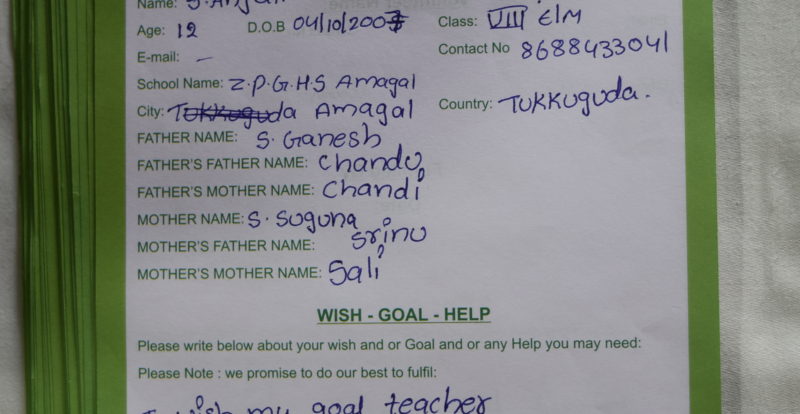 Name: S. Anjali
Age: 12 D.O.B 04/10/2007 Class: VIII E/M
E-mail: - Contact No 8688433041
School Name: Z.P.G.H.S Amagal
City: Tukkuguda Amagal Country: TUKKuguda.
FATHER NAME: S. Ganesh
FATHER'S FATHER NAME: Chandu
FATHER'S MOTHER NAME: Chandi
MOTHER NAME: S. Suguna
MOTHER'S FATHER NAME: Srinu
MOTHER'S MOTHER NAME: Sali
WISH - GOAL - HELP
Please write below about your wish and or Goal and or any Help you may need:
Please Note : we promise to do our best to fulfil:
I wish my goal teacher